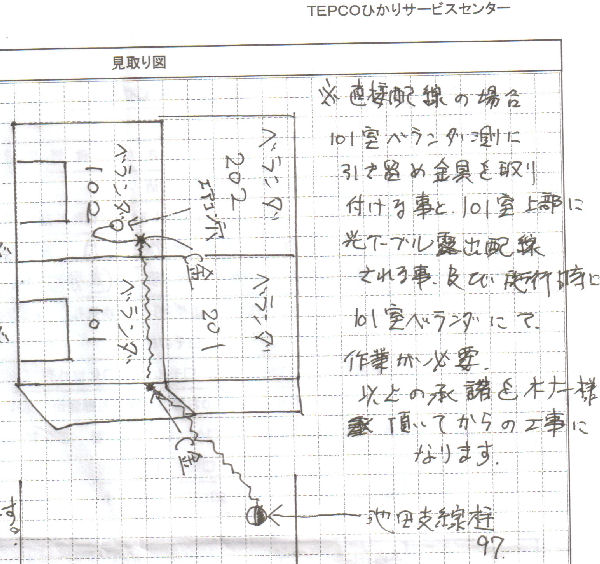 TEPCOひかりサービスセンター
見取り図
※直接配線の場合
101室ベランダ測に
引き留め金具を取り
付ける事と、101室上部に
光ケーブル露出配線
される事、及び施行時に
101室ベランダにて、
作業が必要。
以上の承諾を
頂いてからの工事に
なります。
ベランダ
202
エアコン穴
ベランダ
102
ベランダ
201
ベランダ
101
池田支線柱
97
す。